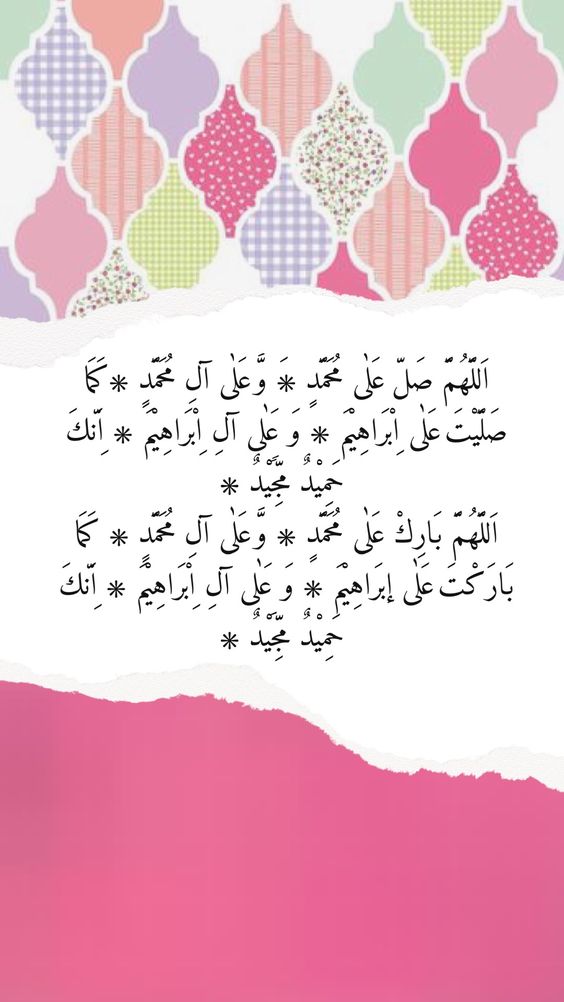 اَللّٰهُمَّ صَلِّ عَلٰى مُحَمَّدٍ * وَّعَلٰى آلِ مُحَمَّدٍ * كَمَا
صَلَّيْتَ عَلٰى اِبْرَاهِيْمَ * وَ عَلٰى آلِ اِبْرَاهِيْمَ * اِنَّكَ
حَمِيْدٌ مَّجِيْدٌ *
اَللّٰهُمَّ بَارِكْ عَلٰى مُحَمَّدٍ * وَّعَلٰى آلِ مُحَمَّدٍ * كَمَا
بَارَكْتَ عَلٰى إبرَاهِيْمَ * وَ عَلٰى آلِ اِبْرَاهِيْمَ * اِنَّكَ
حَمِيْدٌ مَّجِيْدٌ *